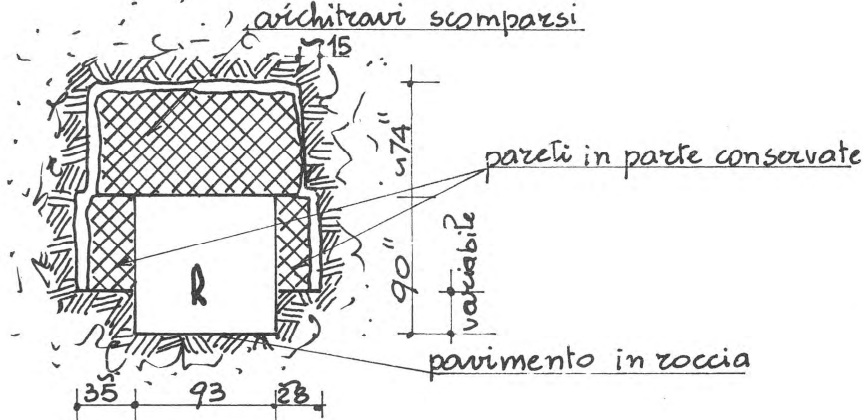 architravi scomparsi
~15
~74"
pareti in parte conservate
90"
variabile
R
pavimento in roccia
35 93 28